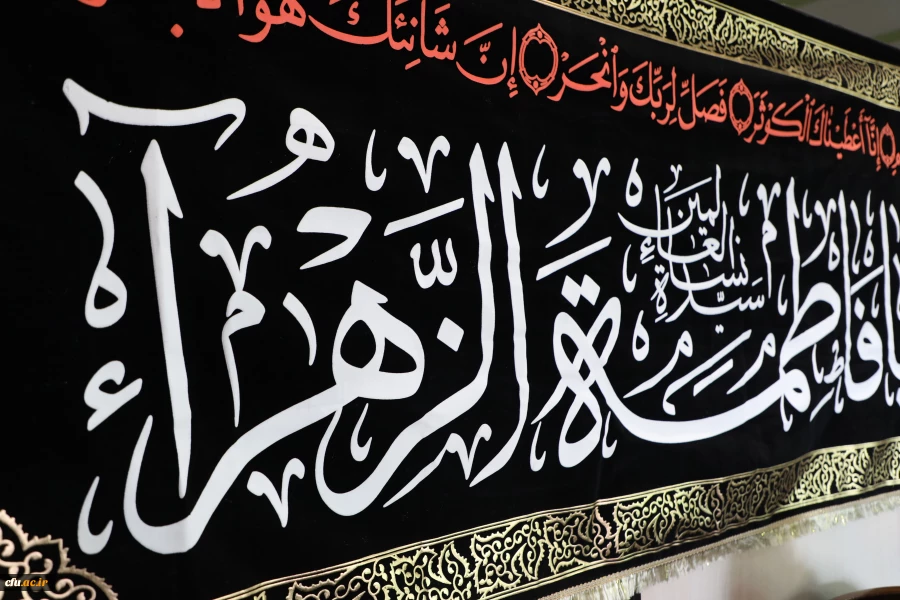 إِنَّا أَعْطَيْنَاكَ ٱلْكَوْثَرَ فَصَلِّ لِرَبِّكَ وَٱنْحَرْ إِنَّ شَانِئَكَ هُوَ
يا فاطمة الزهراء
سيدة نساء العالمين
cfu.ac.ir